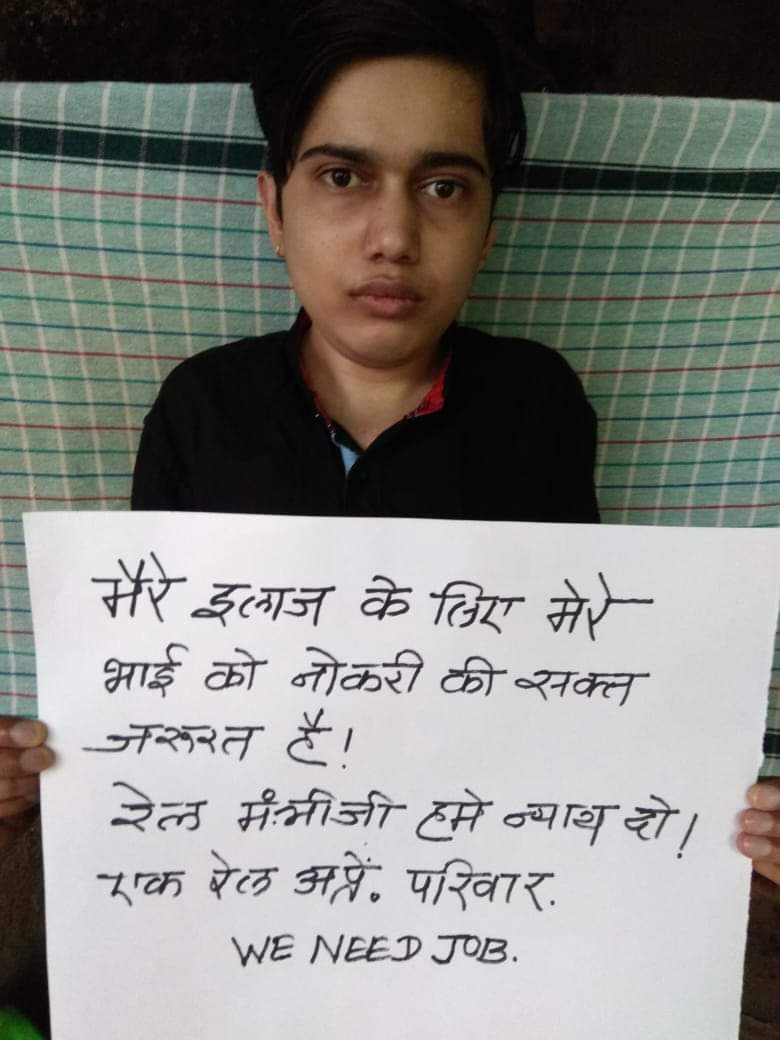 मैरे इलाज के लिए मेरे
भाई को नोकरी की सक्त
जरूरत है!
रेल मंत्रीजी हमे न्याय दो!
एक रेल अप्रें. परिवार.
WE NEED JOB.